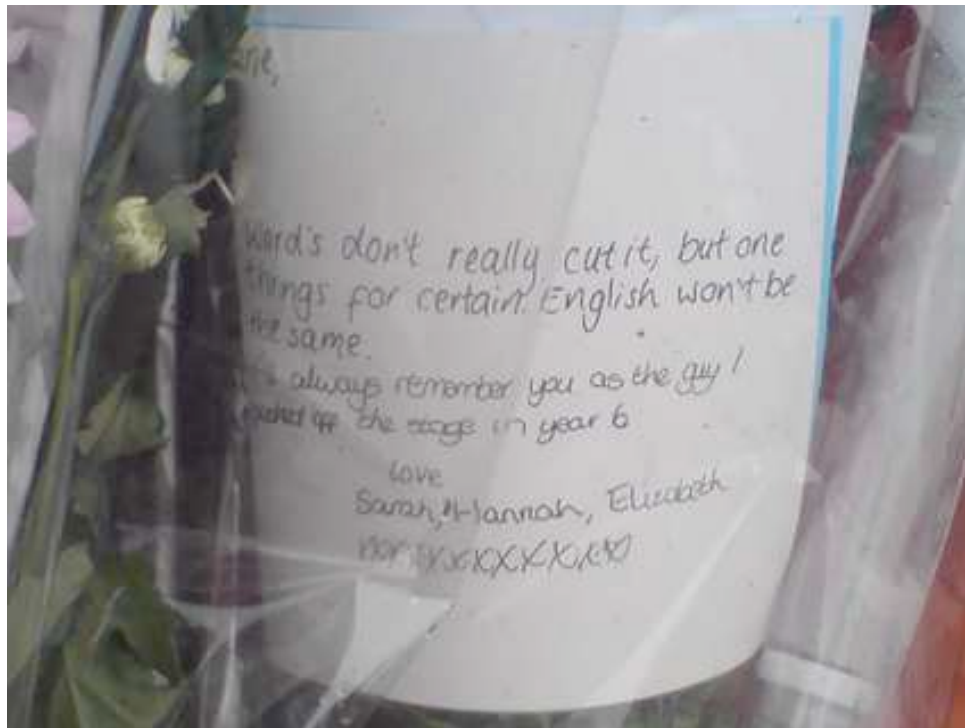 Word's don't really cut it, but one
things for certain. English won't be
the same.
always remember you as the guy I
off the stage in year 6
Love
Sarah, Hannah, Elizabeth